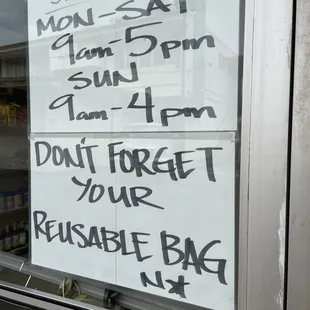 MON-SAT
9am-5pm
SUN
9am-4pm
DON'T FORGET
YOUR
REUSABLE BAG